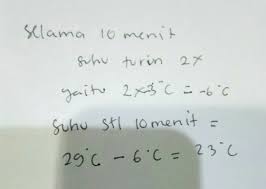 selama 10 menit
suhu turun 2x
yaitu 2x3°C = -6°C
suhu stl 10 menit =
29°C - 6°C = 23°C